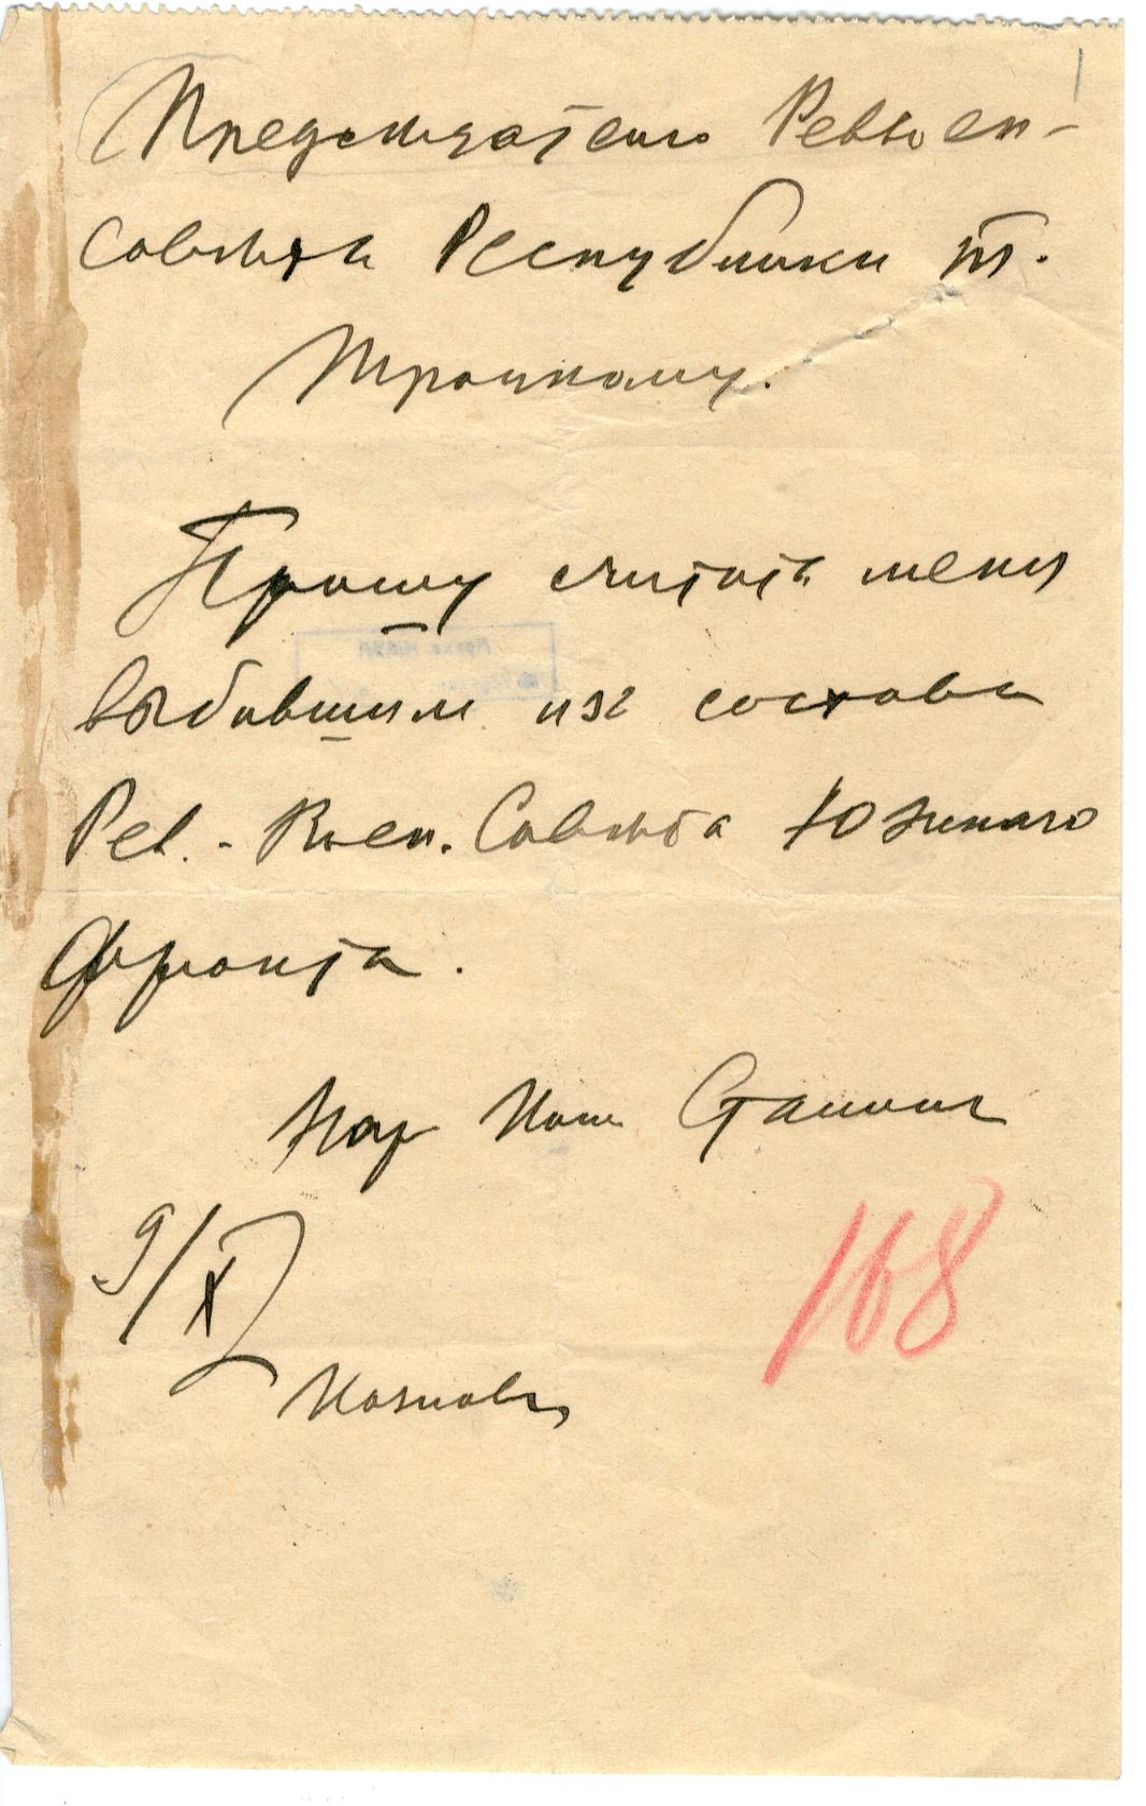 Председателю Реввоен-
совѣта Республики т.
Троцкому.
Прошу считать меня
выбывшим изъ состава
Рев.-Воен. Совѣта Южнаго
фронта.
Нар Ком Сталинъ
9/X
168